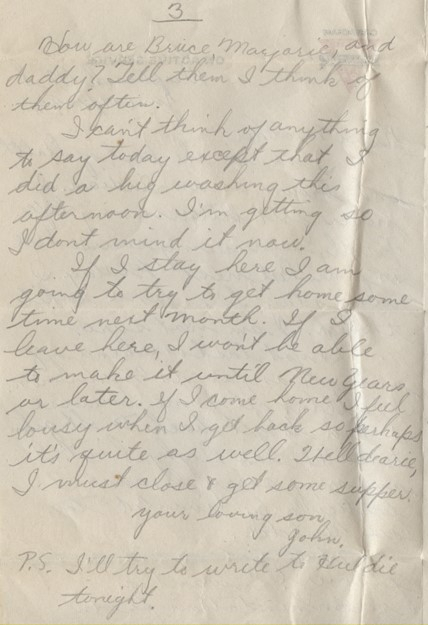 3
How are Bruce, Marjorie, and
daddy? Tell them I think of
them often.
I can't think of anything
to say today except that I
did a big washing this
afternoon. I'm getting so
I dont mind it now.
If I stay here I am
going to try to get home some
time next month. If I
leave here, I won't be able
to make it until New Years
or later. If I come home I feel
lousy when I get back so perhaps
it's quite as well. Well dearie,
I must close & get some supper.
your loving son,
John.
P.S. I'll try to write to
tonight.